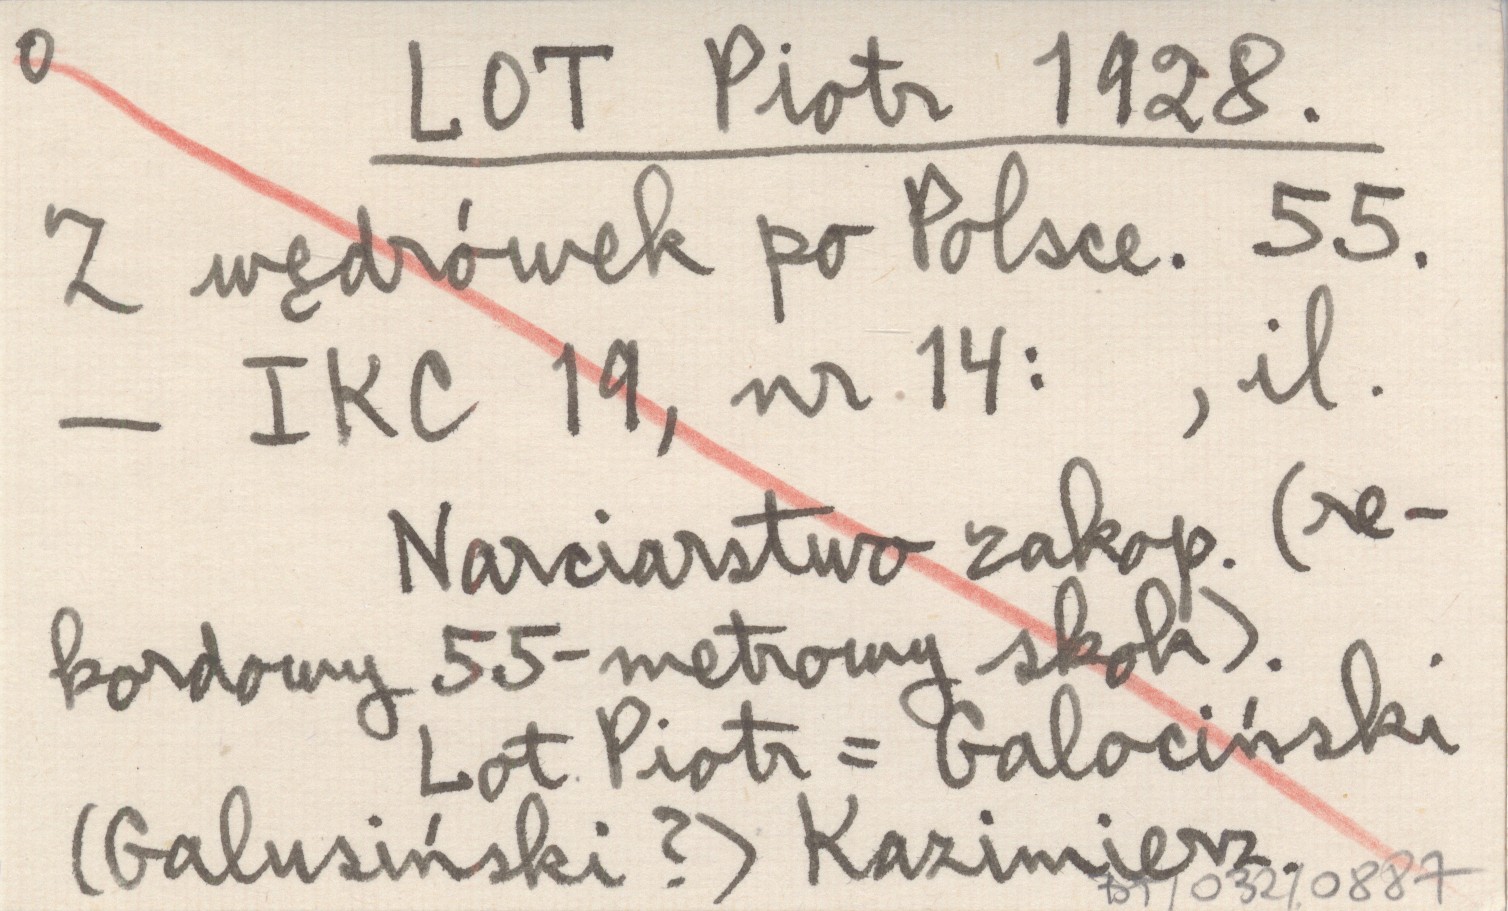 o LOT Piotr 1928.
Z wędrówek po Polsce. 55.
— IKC 19, nr 14: , il.
Narciarstwo zakop. (re-
kordowy 55-metrowy skok).
Lot Piotr = Galociński
(Galusiński?) Kazimierz.
/032/0887